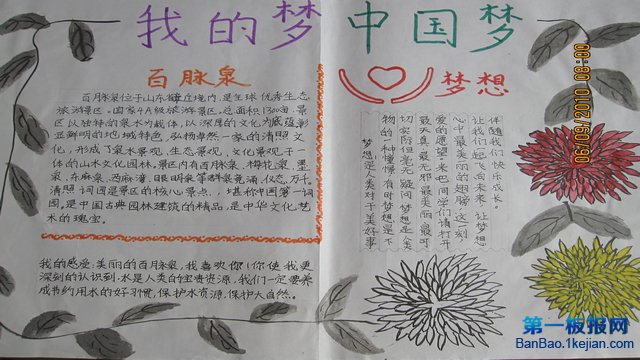 我的梦 中国梦
百脉泉
百月泉位于山东章丘境内,是全球优秀生态
旅游景区。国家4A级旅游景区。总面积1300亩,景
区以独特的泉水为载体,以深厚的文化为底蕴,彰
显鲜明的地域特色,弘杨卓然一家的清照文
化,形成了泉水景观、生态景观、文化景观于一
体的山水文化园林。景区内有百脉泉、梅花泉、墨
泉、东麻湾、西麻湾、眼明泉等群泉竞涌,仪态万千。
清照词园是景区的核心景点,堪称中国第一词
园。是中国古典园林建筑的精品,是中华文化艺
术的瑰宝。
我的感受:美丽的百脉泉,我喜欢你!你使我更
深刻的认识到:水是人类的宝贵资源,我们一定要养
成节约用水的好习惯,保护水资源,保护大自然。
梦想
梦想是人类对于美好事
物的一种憧憬,有时梦想是不
切实际但毫无疑问梦想是人类
最天真最无邪最美丽最可
爱的愿望。来吧同学们请打开
心中最美丽的翅膀这一刻
让我们一起飞向未来让梦想
伴随我们快乐成长。
06/09/2010 08:00
第一板报网
BanBao.1kejian.com